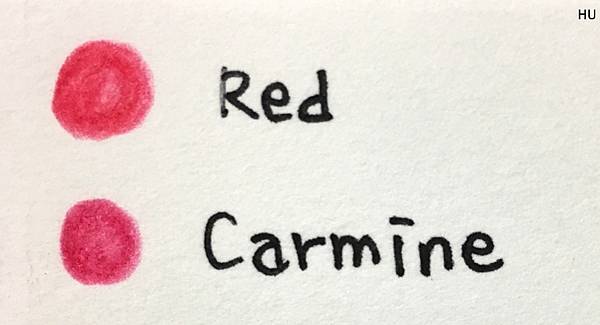 HU
Red
Carmine